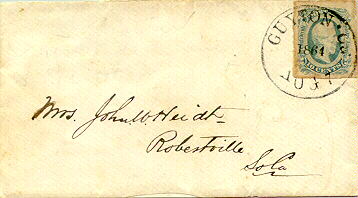 GUYTON GA
1864
Mrs. John W Heidt.
Robertville.
So Ca